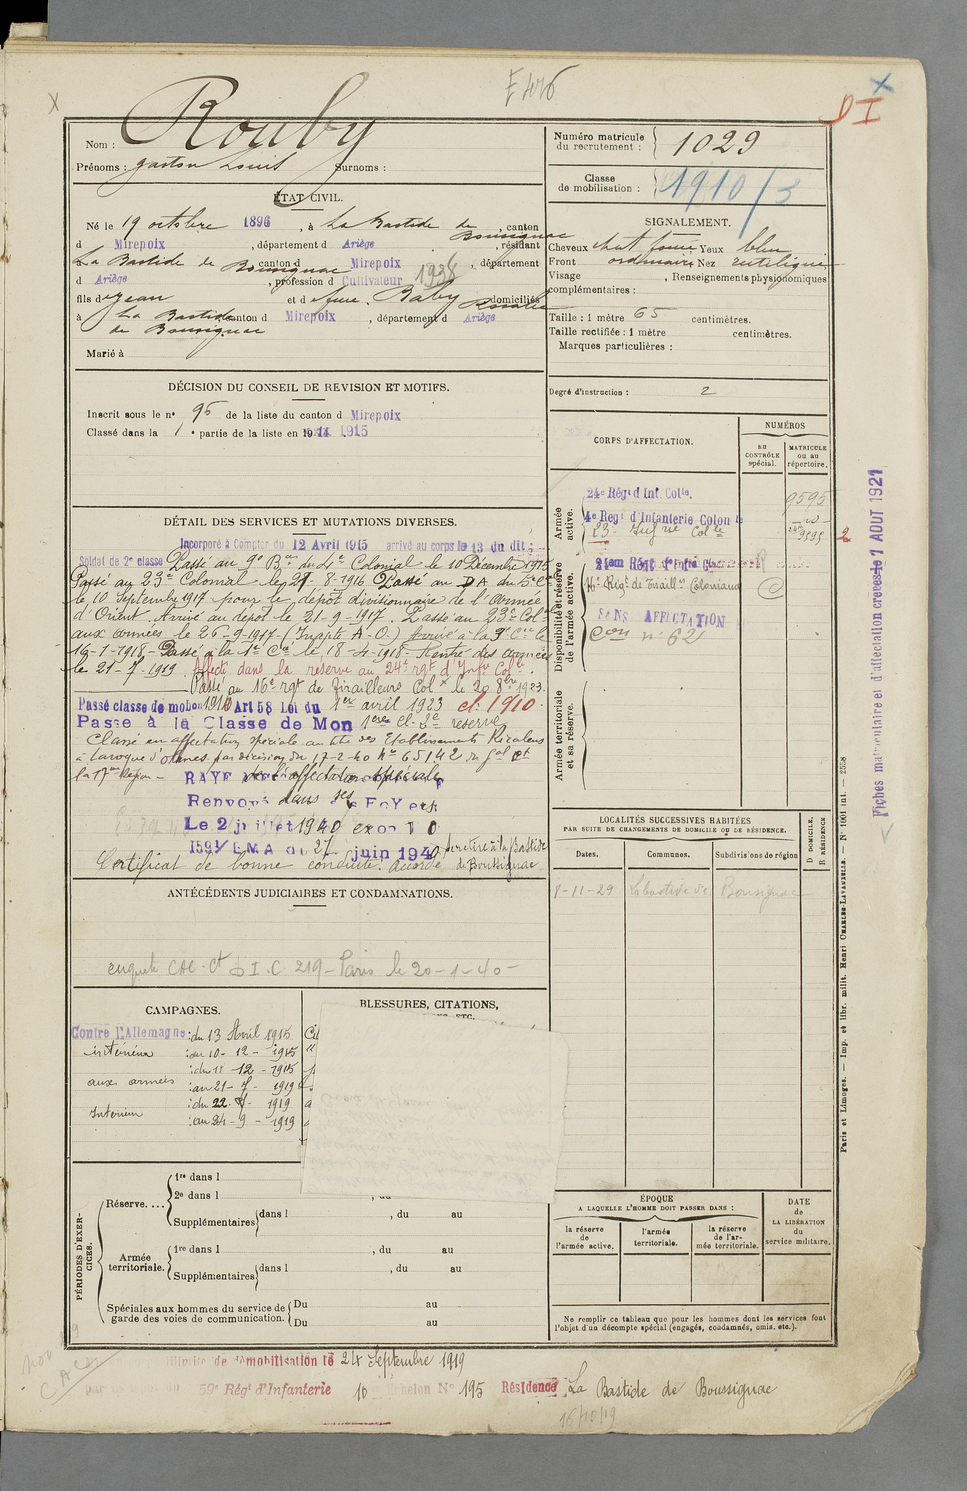 E 426
X
DI
Nom : Rouby
Prénoms : Gaston Louis Surnoms :
Numéro matricule du recrutement : 1029
Classe de mobilisation : 1910/3
ÉTAT CIVIL.
Né le 19 octobre 1896, à La Bastide de Bousignac, canton
d Mirepoix, département d Ariège, résidant
La Bastide de Bousignac canton d Mirepoix, département
d Ariège, profession d Cultivateur 1938
fils de Jean et d feue Baby Rosalie domiciliés
à La Bastide de Bousignac canton d Mirepoix, département d Ariège
Marié à
SIGNALEMENT.
Cheveux chat foncé Yeux bleu
Front ordinaire Nez rectiligne
Visage , Renseignements physionomiques
complémentaires :
Taille : 1 mètre 65 centimètres.
Taille rectifiée : 1 mètre centimètres.
Marques particulières :
Degré d'instruction : 2
DÉCISION DU CONSEIL DE REVISION ET MOTIFS.
Inscrit sous le n° 96 de la liste du canton d Mirepoix
Classé dans la 1e partie de la liste en 1915
DÉTAIL DES SERVICES ET MUTATIONS DIVERSES.
Incorporé à Compter du 12 Avril 1915 arrivé au corps le 13 du dit
Soldat de 2e classe Passé au 9e Bon du 4e Colonial le 10 Décembre 1915
Passé au 23e Colonial le 27-8-1916 Passé au DA du 5e C
le 10 Septembre 1917 pour le dépôt divisionnaire de l'Armée
d'Orient. Arrivé au dépôt le 21-9-1917. Passé au 23e Col
aux armées le 26-9-1917 (Inapte A.O.) Arrivé à la 9e Cie le
16-1-1918 Passé à la 1e Cie le 18-4-1918 Rentré des armées
le 21-7-1919 Affecté dans la réserve au 24e rgt d'Infie Colle.
Passé au 16e rgt de Tirailleurs Colx le 20 8bre 1923.
Passé classe de mobon 1910 Art 58 Loi du 1er avril 1923 cl. 1910
Passe à la Classe de Mon 1ere cl. 2e réserve
Classé en affectation spéciale au titre des Etablissements
à Laroque d'Olmes par décision du 17-2-40 No 65142 du Gal Ct
la 17me Région
RAYE de l'affectation spéciale
Renvoyé dans ses Foyers
Le 2 juillet 1940
EMA du 27 juin 1940 se retire à la Bastide de Bousignac
Certificat de bonne conduite accordé
CORPS D'AFFECTATION.
NUMÉROS
au CONTRÔLE spécial.
MATRICULE ou au répertoire.
Armée active.
24e Régt d'Inf. Colle. 9595
4e Regt d'Infanterie Colon le
23e Inf rie Colle 9595
2
Disponibilité et réserve de l'armée active.
24em Régt d'Infrie
16e Régt de Tiraillrs Coloniaux C
SANS AFFECTATION
Con n° 621
Armée territoriale et sa réserve.
LOCALITÉS SUCCESSIVES HABITÉES
PAR SUITE DE CHANGEMENTS DE DOMICILE OU DE RÉSIDENCE.
Dates. Communes. Subdivisions de région D DOMICILE. R RÉSIDENCE
1-11-29 Labastide de Bousignac
ANTÉCÉDENTS JUDICIAIRES ET CONDAMNATIONS.
enquête CAC. Ct D.I.C 219 Paris le 20-1-40
CAMPAGNES.
Contre l'Allemagne : du 13 Avril 1915
intérieur : au 10-12-1915
: du 11-12-1915
aux armées : au 21-7-1919
: du 22-7-1919
Intérieur : au 24-9-1919
BLESSURES, CITATIONS,
ETC.
PÉRIODES D'EXERCICES.
Réserve. ...
1re dans l
2e dans l , du
Supplémentaires dans l , du au
Armée territoriale.
1re dans l , du au
Supplémentaires dans l , du au
Spéciales aux hommes du service de garde des voies de communication.
Du au
Du au
ÉPOQUE
A LAQUELLE L'HOMME DOIT PASSER DANS :
la réserve de l'armée active.
l'armée territoriale.
la réserve de l'armée territoriale.
DATE de LA LIBÉRATION du service militaire.
Ne remplir ce tableau que pour les hommes dont les services font l'objet d'un décompte spécial (engagés, condamnés, omis, etc.).
illimité de démobilisation le 24 Septembre 1919
59e Régt d'Infanterie 10 échelon N° 195 Résidence La Bastide de Boussignac
16/10/19
CAC
Fiches matriculaire et d'affectation créées le 7 AOUT 1921
Paris et Limoges. — Imp. et libr. milit. Henri CHARLES-LAVAUZELLE. — N° 1001 int. — 2558